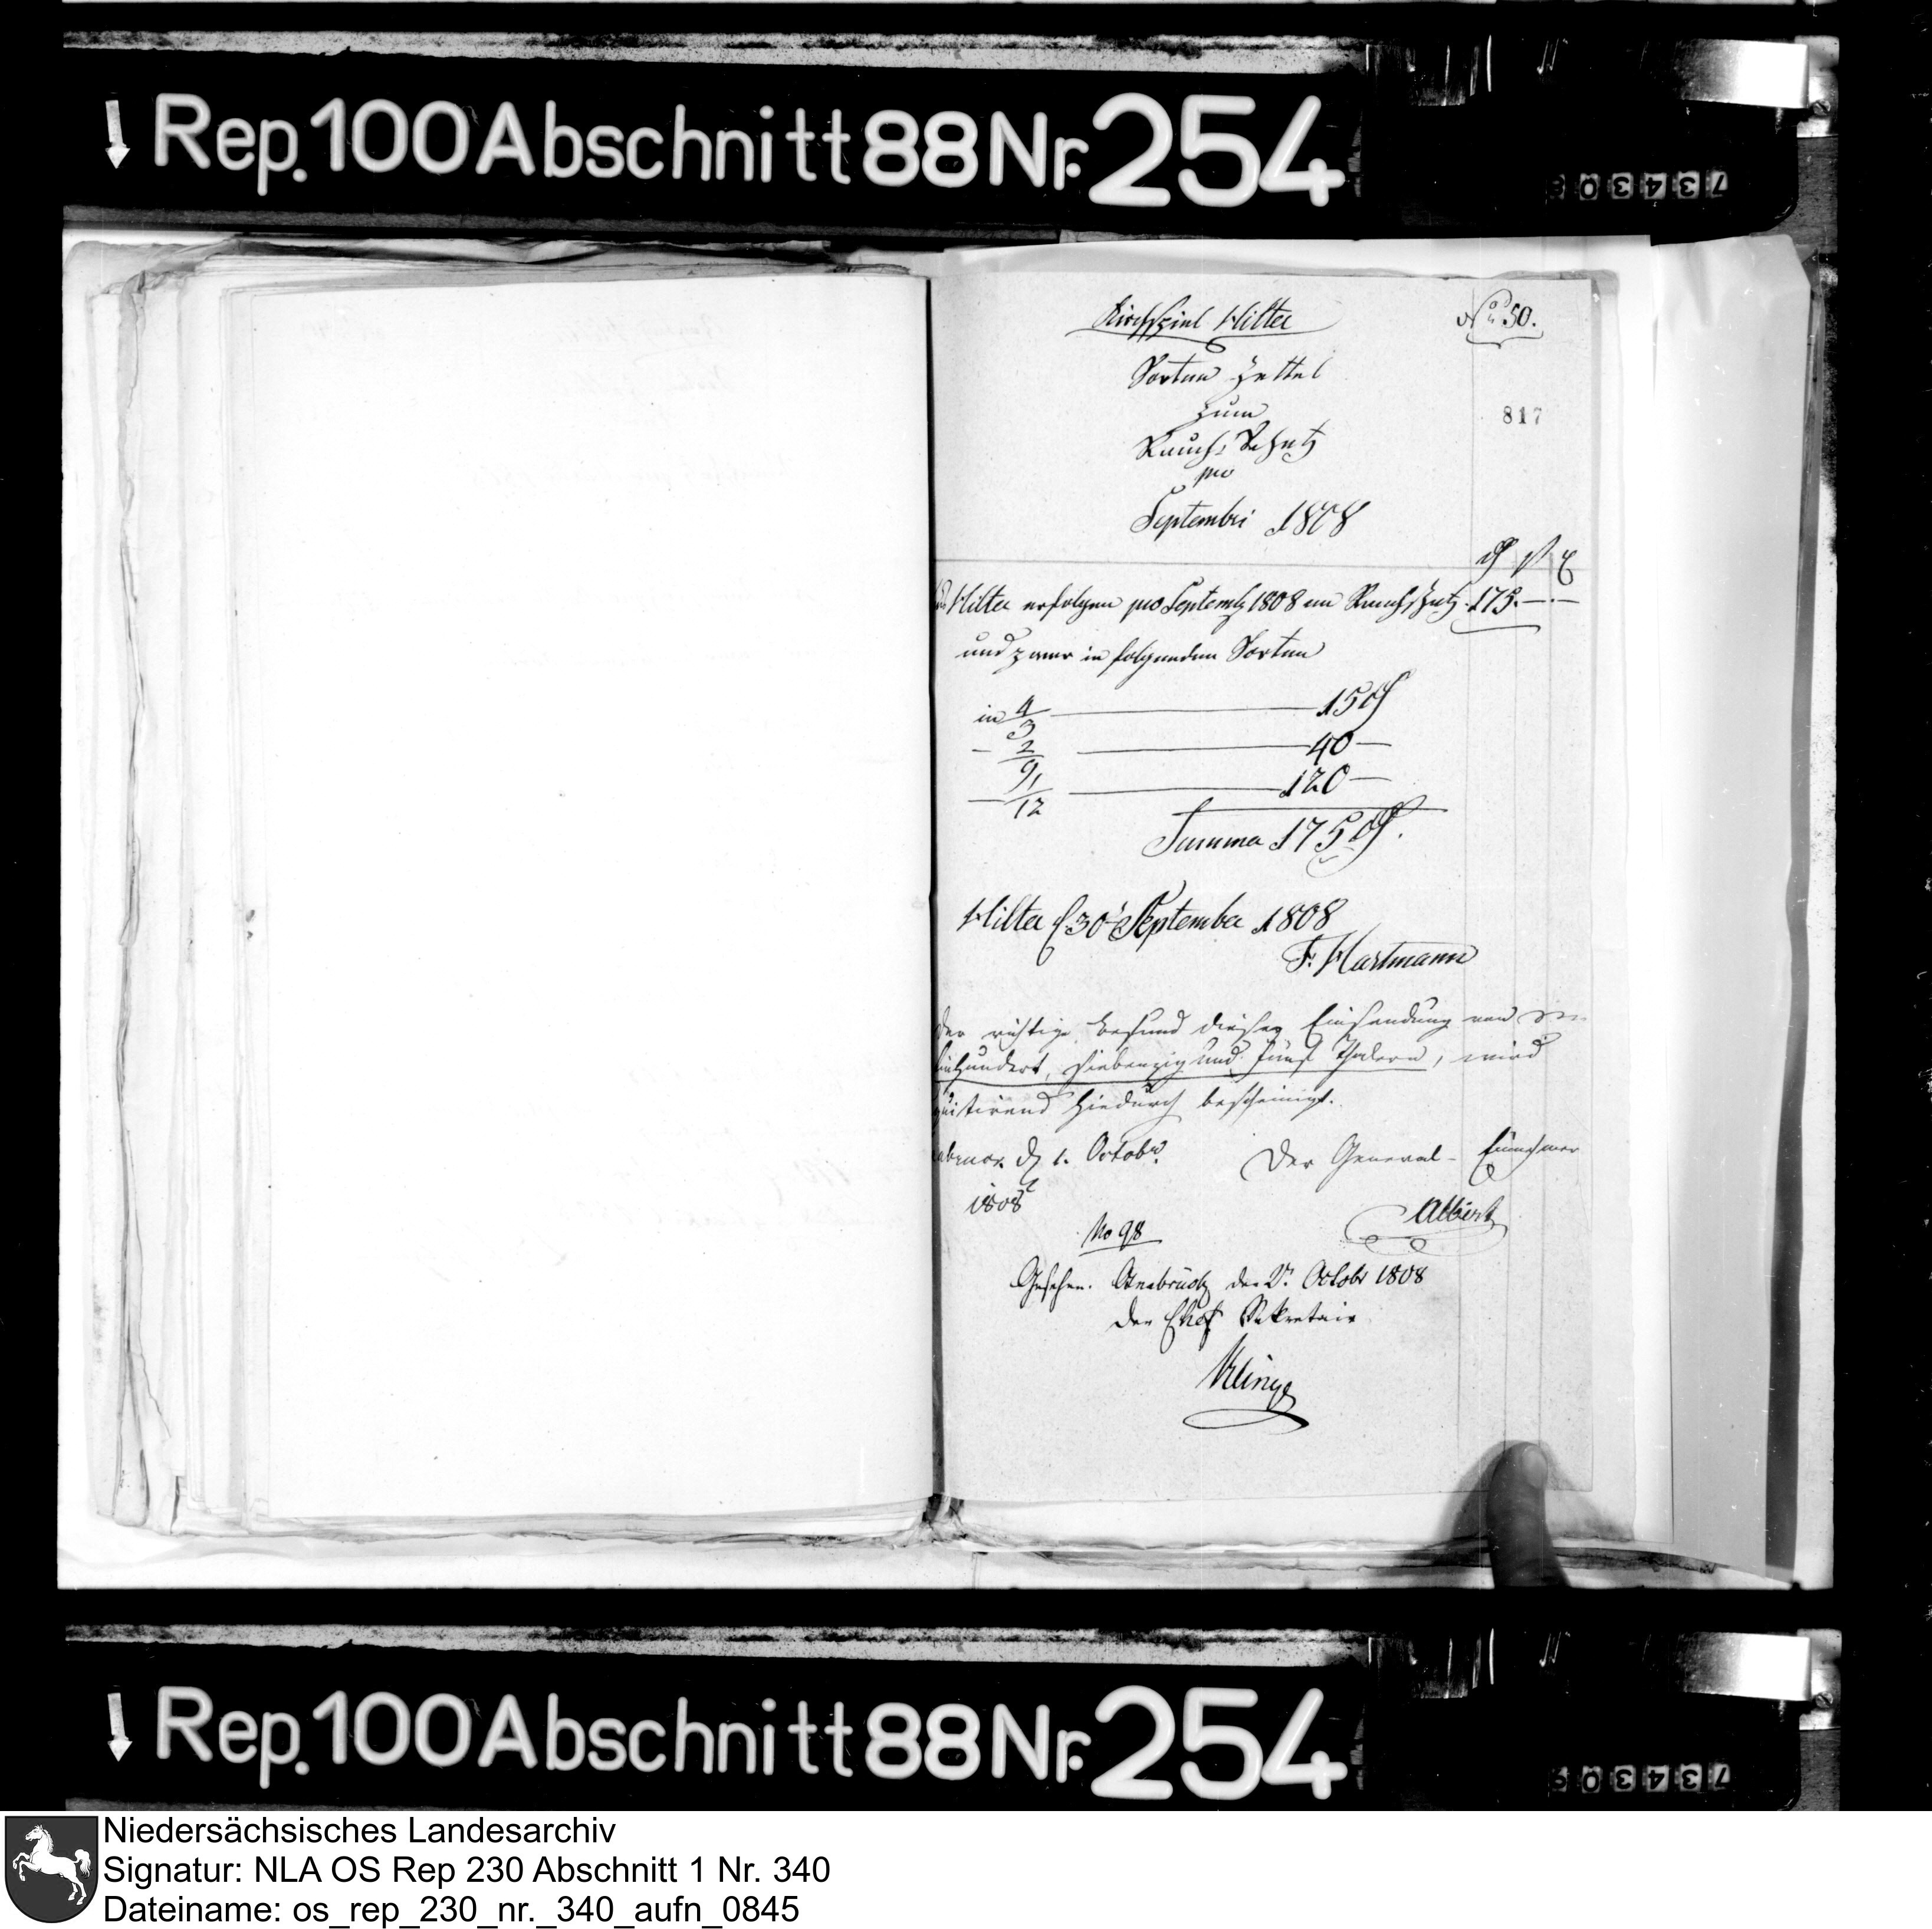 Rep. 100 Abschnitt 88 Nr. 254
73430
Kirchspiel Hilter
No 50.
Sorten Zettel
zum
817
Rauch-Schatz
pro
Septembri 1808
Hilter erfolgen pro Septemb 1808 an Rauchschatz 175. — —
und zwar in folgenden Sorten
in 4/3 — 15
— 2/3 — 40 —
— 1/12 — 120 —
Summa 175
Hilter d 30t September 1808
F. Hartmann
Der richtige Befund dieser Einsendung von
Einhundert, siebenzig und fünf Thalern, wird
quitirend hiedurch bescheinigt.
d 1. Octobr.
Der General-Einnehmer
1808
Albert
No 98
Gesehen. Osnabrück den 2t. Octobr 1808
Der Chef Sekretair
Klinge
Rep. 100 Abschnitt 88 Nr. 254
73430
Niedersächsisches Landesarchiv
Signatur: NLA OS Rep 230 Abschnitt 1 Nr. 340
Dateiname: os_rep_230_nr._340_aufn_0845